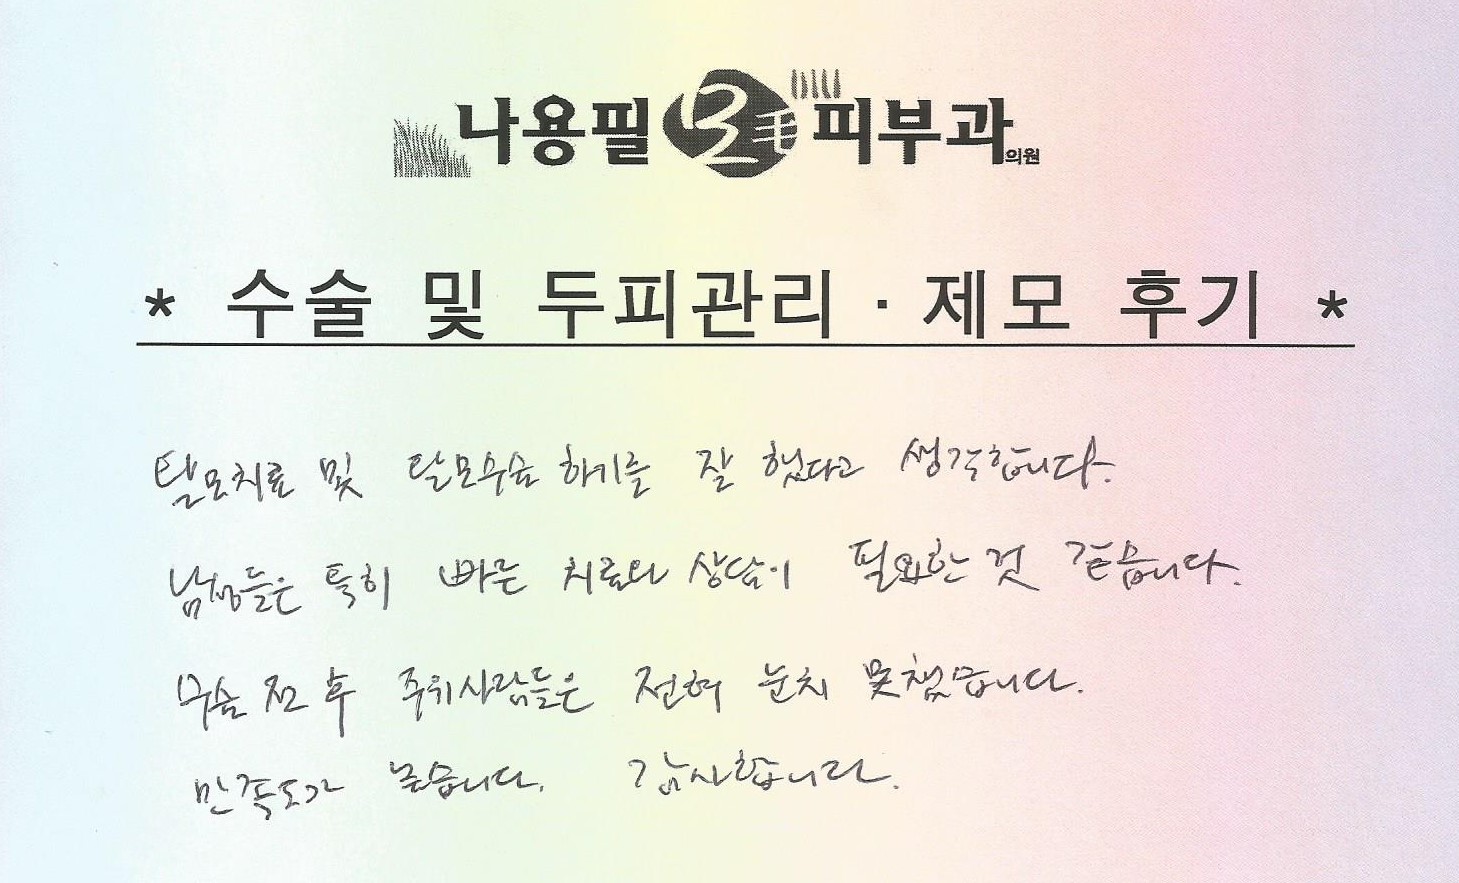 나용필 모毛 피부과의원
* 수술 및 두피관리 · 제모 후기 *
탈모치료 및 탈모수술 하기를 잘 했다고 생각합니다.
남성들은 특히 빠른 치료와 상담이 필요한 것 같습니다.
수술 전 후 주위사람들은 전혀 눈치 못챘습니다.
만족도가 높습니다. 감사합니다.